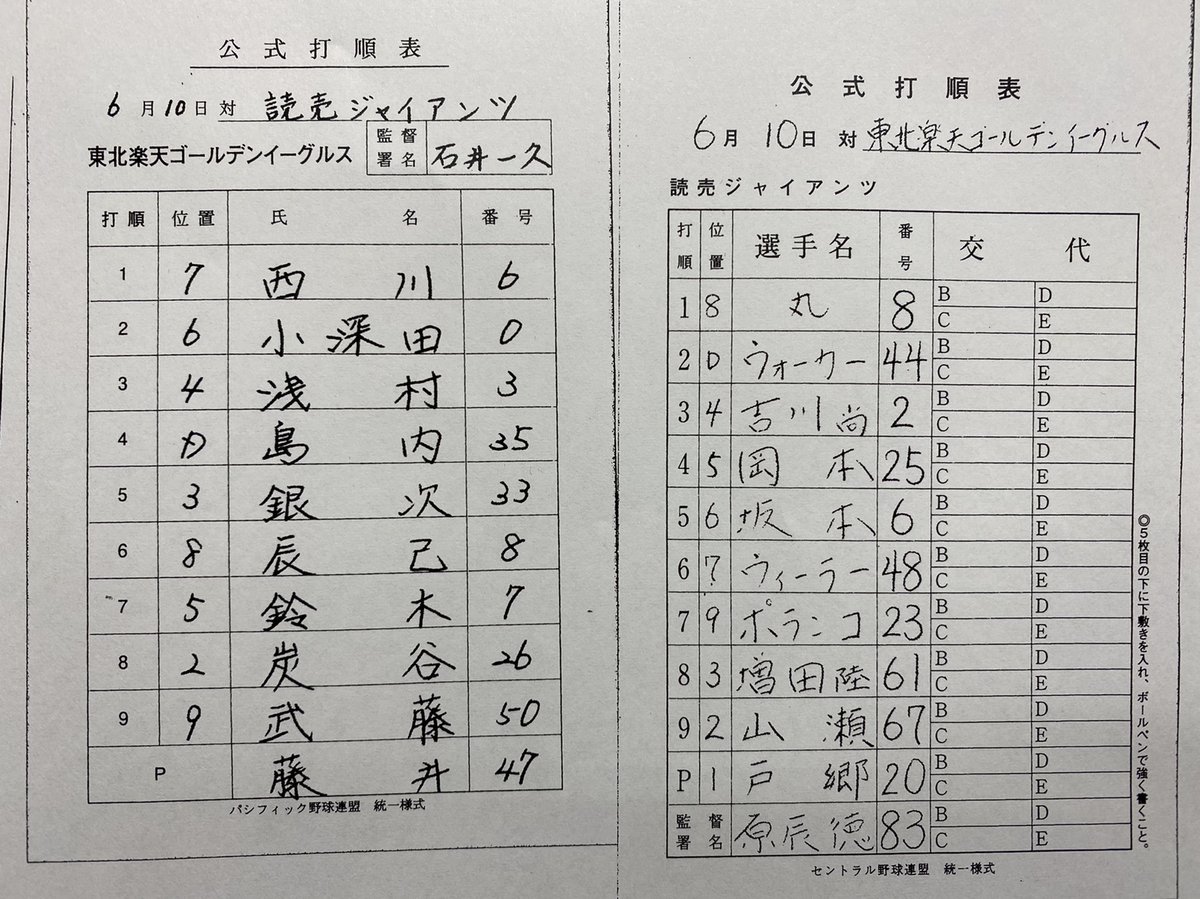 公式打順表
6月10日対 読売ジャイアンツ
東北楽天ゴールデンイーグルス 監督署名 石井一久
打順 位置 氏名 番号
1 7 西川 6
2 6 小深田 0
3 4 浅村 3
4 D 島内 35
5 3 銀次 33
6 8 辰己 8
7 5 鈴木 7
8 2 炭谷 26
9 9 武藤 50
P 藤井 47
パシフィック野球連盟 統一様式
公式打順表
6月10日 対 東北楽天ゴールデンイーグルス
読売ジャイアンツ
打順 位置 選手名 番号 交代
1 8 丸 8 B D
C E
2 D ウォーカー 44 B D
C E
3 4 吉川尚 2 B D
C E
4 5 岡本 25 B D
C E
5 6 坂本 6 B D
C E
6 7 ウィーラー 48 B D
C E
7 9 ポランコ 23 B D
C E
8 3 増田陸 61 B D
C E
9 2 山瀬 67 B D
C E
P 1 戸郷 20 B D
C E
監督署名 原辰徳 83 B D
C E
セントラル野球連盟 統一様式
◎5枚目の下に下敷きを入れ、ボールペンで強く書くこと。